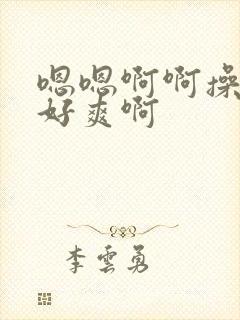 嗯嗯啊啊操
好爽啊
李雲勇